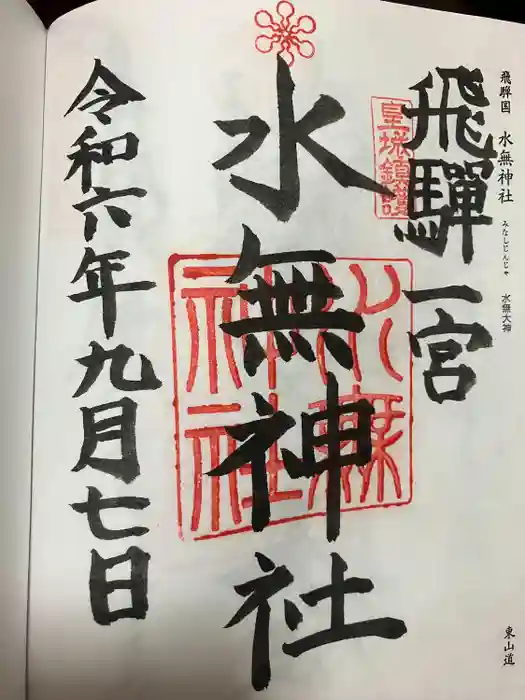 飛騨国 水無神社 みなしじんじゃ 水無大神
東山道
飛騨一宮
皇城鎮護
水無神社
水無神社
令和六年九月七日